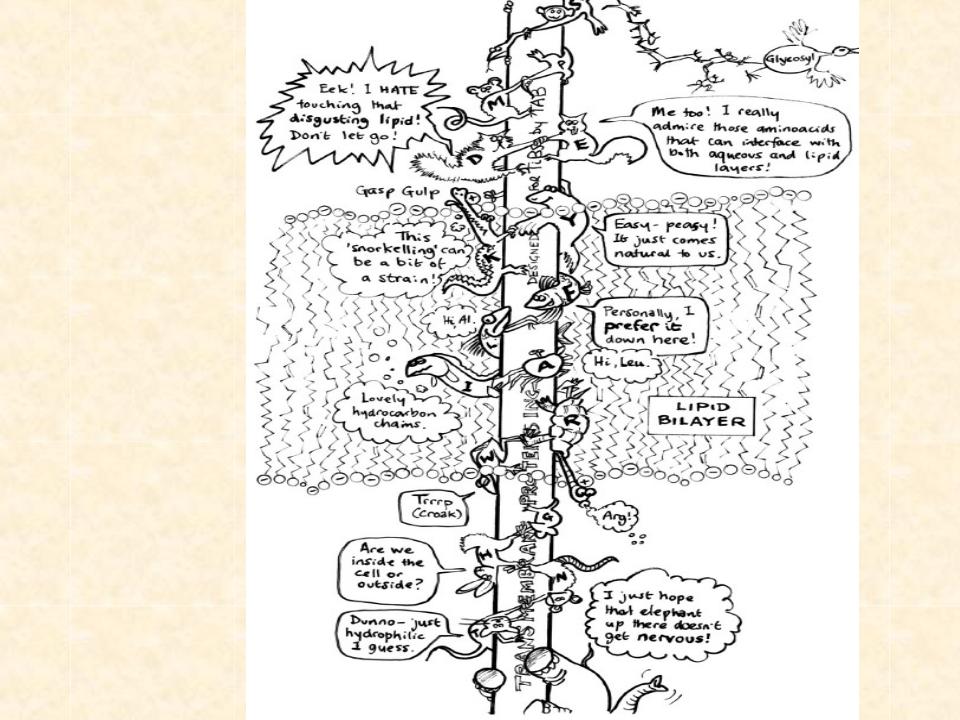 Glycosyl
Eek! I HATE
touching that
disgusting lipid!
Don't let go!
Me too! I really
admire those aminoacids
that can interface with
both aqueous and lipid
layers!
S
M
D
E
Gasp Gulp
This
'snorkelling' can
be a bit of
a strain!
K
Y
Easy-peasy!
It just comes
natural to us.
F
Personally, I
prefer it
down here!
Hi, Al.
L
Hi, Leu.
A
I
Lovely
hydrocarbon
chains.
R
LIPID
BILAYER
W
Trrrp
(croak)
G
Arg!
Are we
inside the
cell or
outside?
H
N
Dunno - just
hydrophilic
I guess.
I just hope
that elephant
up there doesn't
get nervous!
TRANSMEMBRANE PROTEINS ING
DESIGNED FOR TiBS by TAB